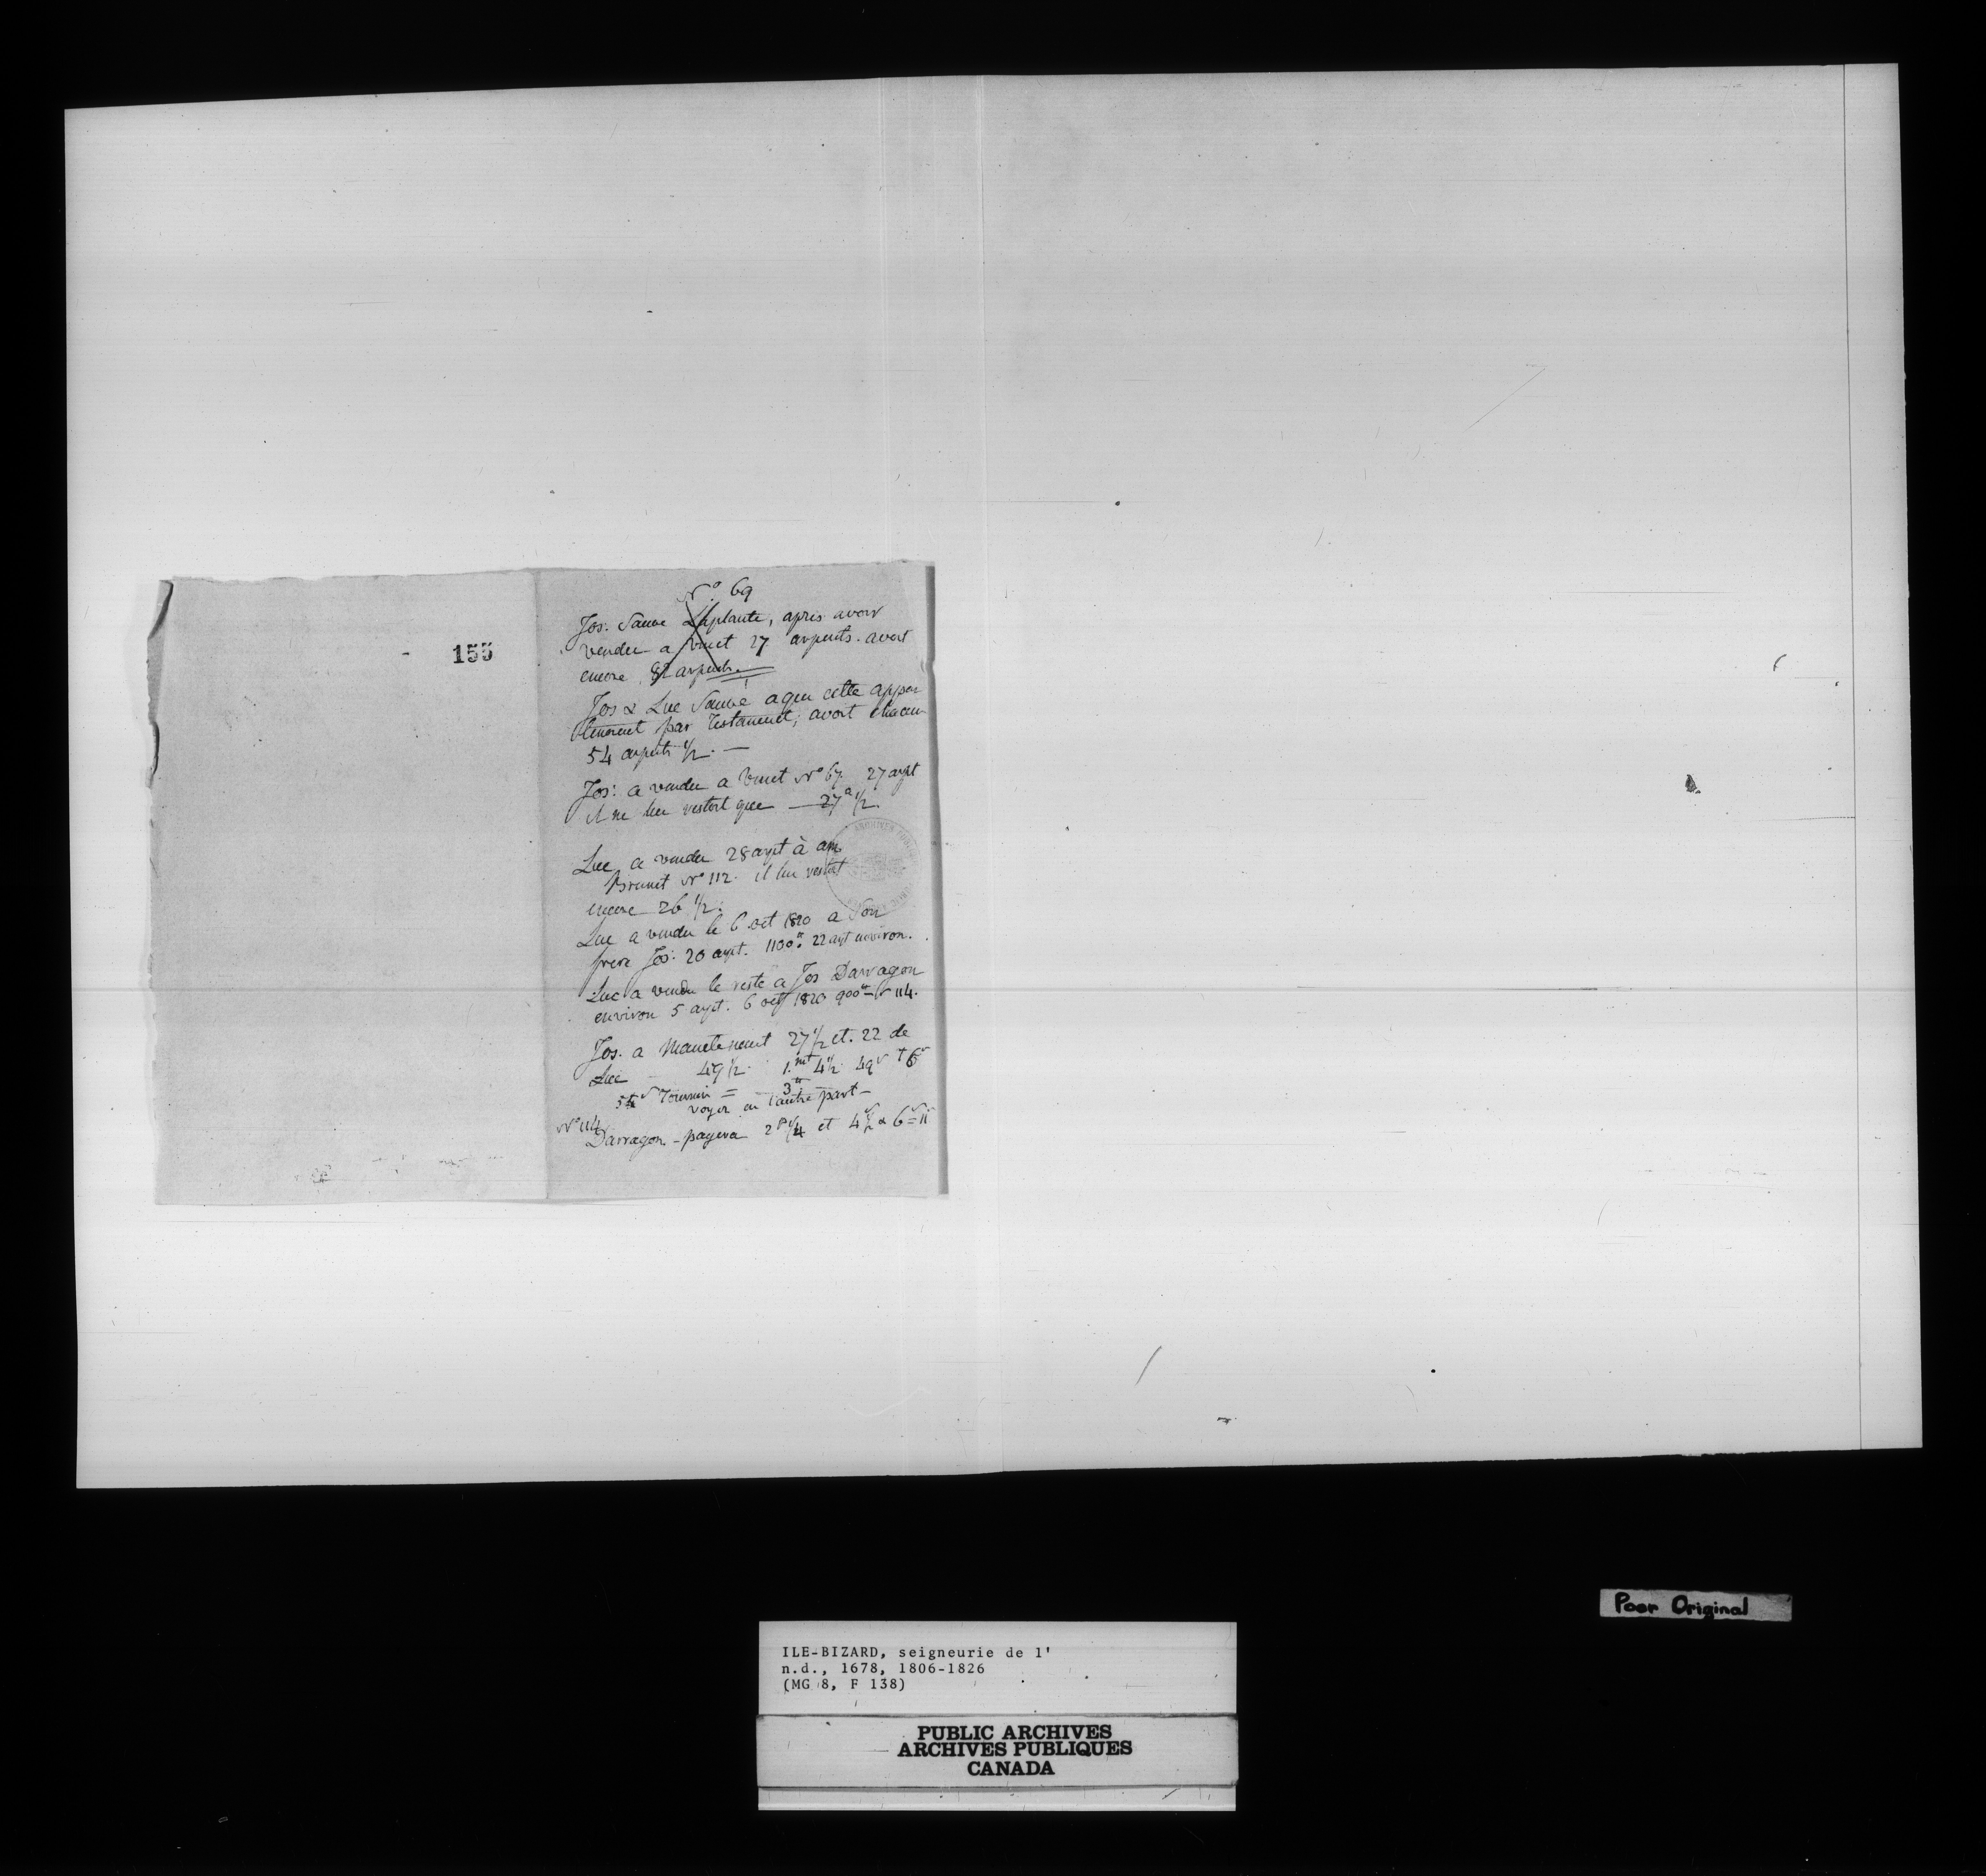 155
N° 69
Jos: Sauve Laplante, apres avoir
vendu a Vinet 27 arpents. avoit
encore 82 arpents.
Jos & Luc Sauvé a qui cette appar
tenoient par Testament, avoit chacun
54 arpents 1/2. —
Jos: a vendu a Vinet N° 67. 27 arpt
il ne lui restoit que — 27 a 1/2.
Luc a vendu 28 arpt à am
Brunet N° 112. il lui restoit
encore 26 1/2.
Luc a vendu le 6 oct 1820 a Son
frere Jos: 20 arpt. 1100# 22 arpt environ.
Luc a vendu le reste a Jos Darragon
environ 5 arpt. 6 oct 1820 900# N 114.
Jos. a Maintenant 27 1/2 et. 22 de
Luc — 49 1/2. 4 1/2. 49
Tournois = 3#
voyez en l'autre part —
N° 114
Darragon — payera 2 1/4 et 4 1/2 & 6 = 11
Poor Original
ILE-BIZARD, seigneurie de l'
n.d., 1678, 1806-1826
(MG 8, F 138)
PUBLIC ARCHIVES
ARCHIVES PUBLIQUES
CANADA